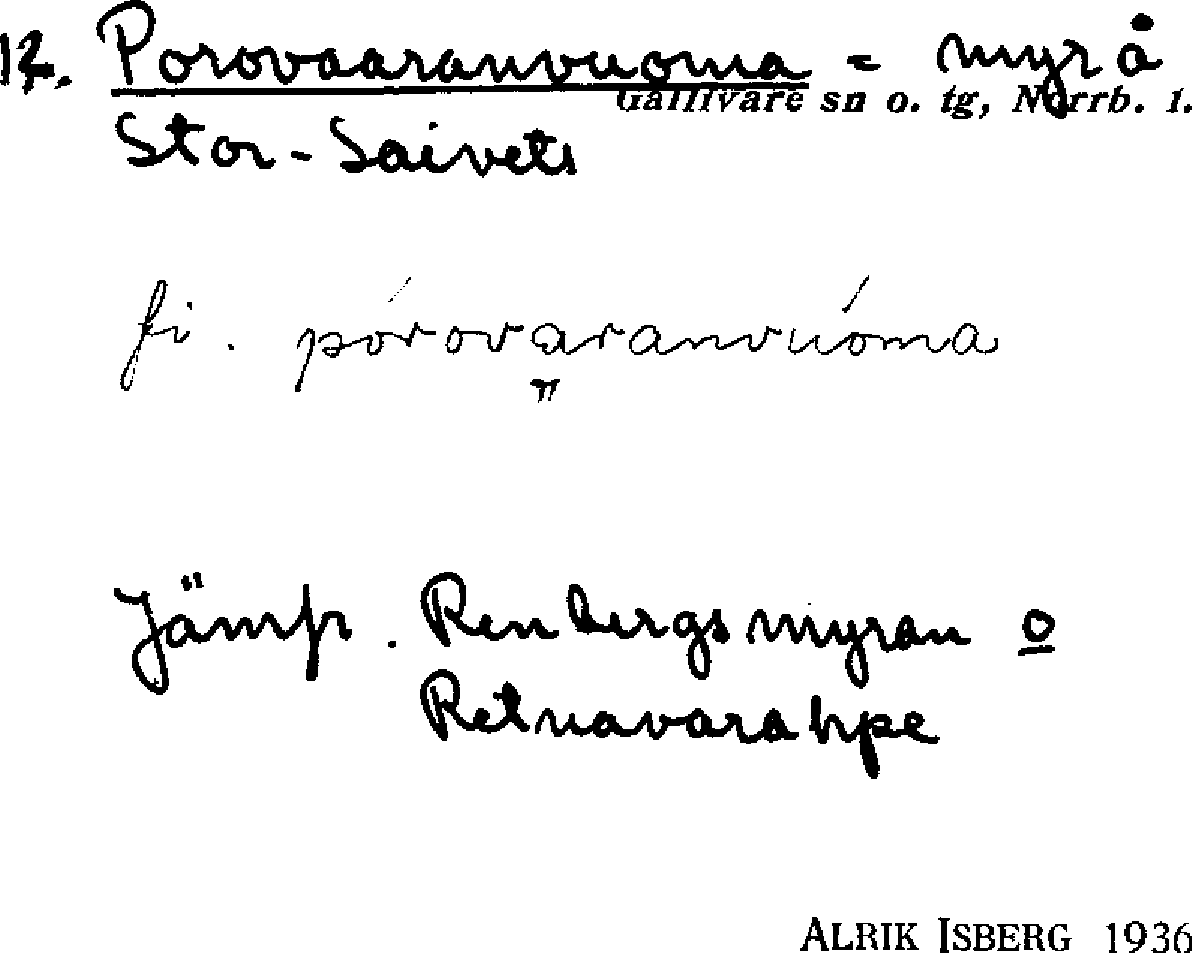 12. Porovaaranvuoma = myr å
Gällivare sn o. tg, Norrb. l.
Stor-Saivets
fi. pórovaranvuóma
Jämför. Renbergsmyran o
Retnavarahpe
ALRIK ISBERG 1936